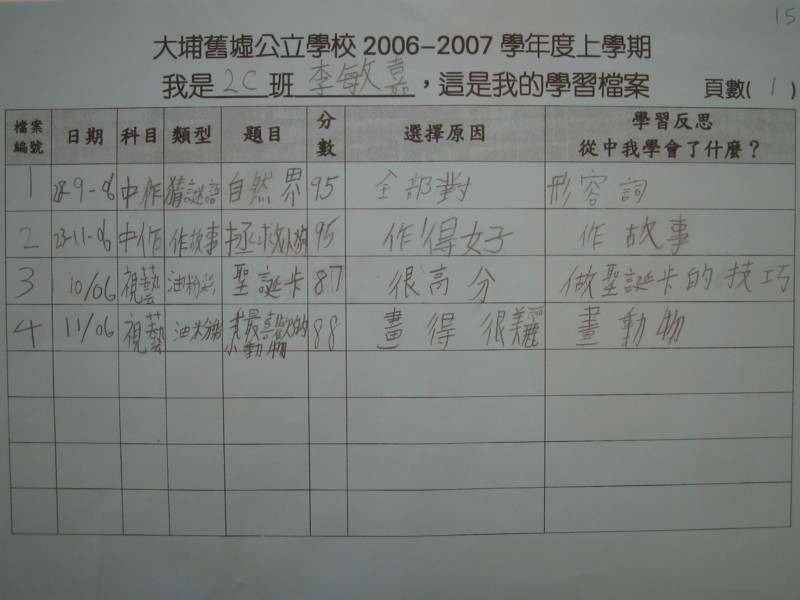 15
大埔舊墟公立學校 2006-2007 學年度上學期
我是 2C 班 李敏嘉，這是我的學習檔案 頁數( 1 )
檔案編號 日期 科目 類型 題目 分數 選擇原因 學習反思 從中我學會了什麼？
1 28-9-06 中作 猜謎語 自然界 95 全部對 形容詞
2 23-11-06 中作 作故事 拯救人狗 95 作得好 作故事
3 10/06 視藝 油粉彩 聖誕卡 87 很高分 做聖誕卡的技巧
4 11/06 視藝 油粉 我最喜歡的小動物 88 畫得很美麗 畫動物